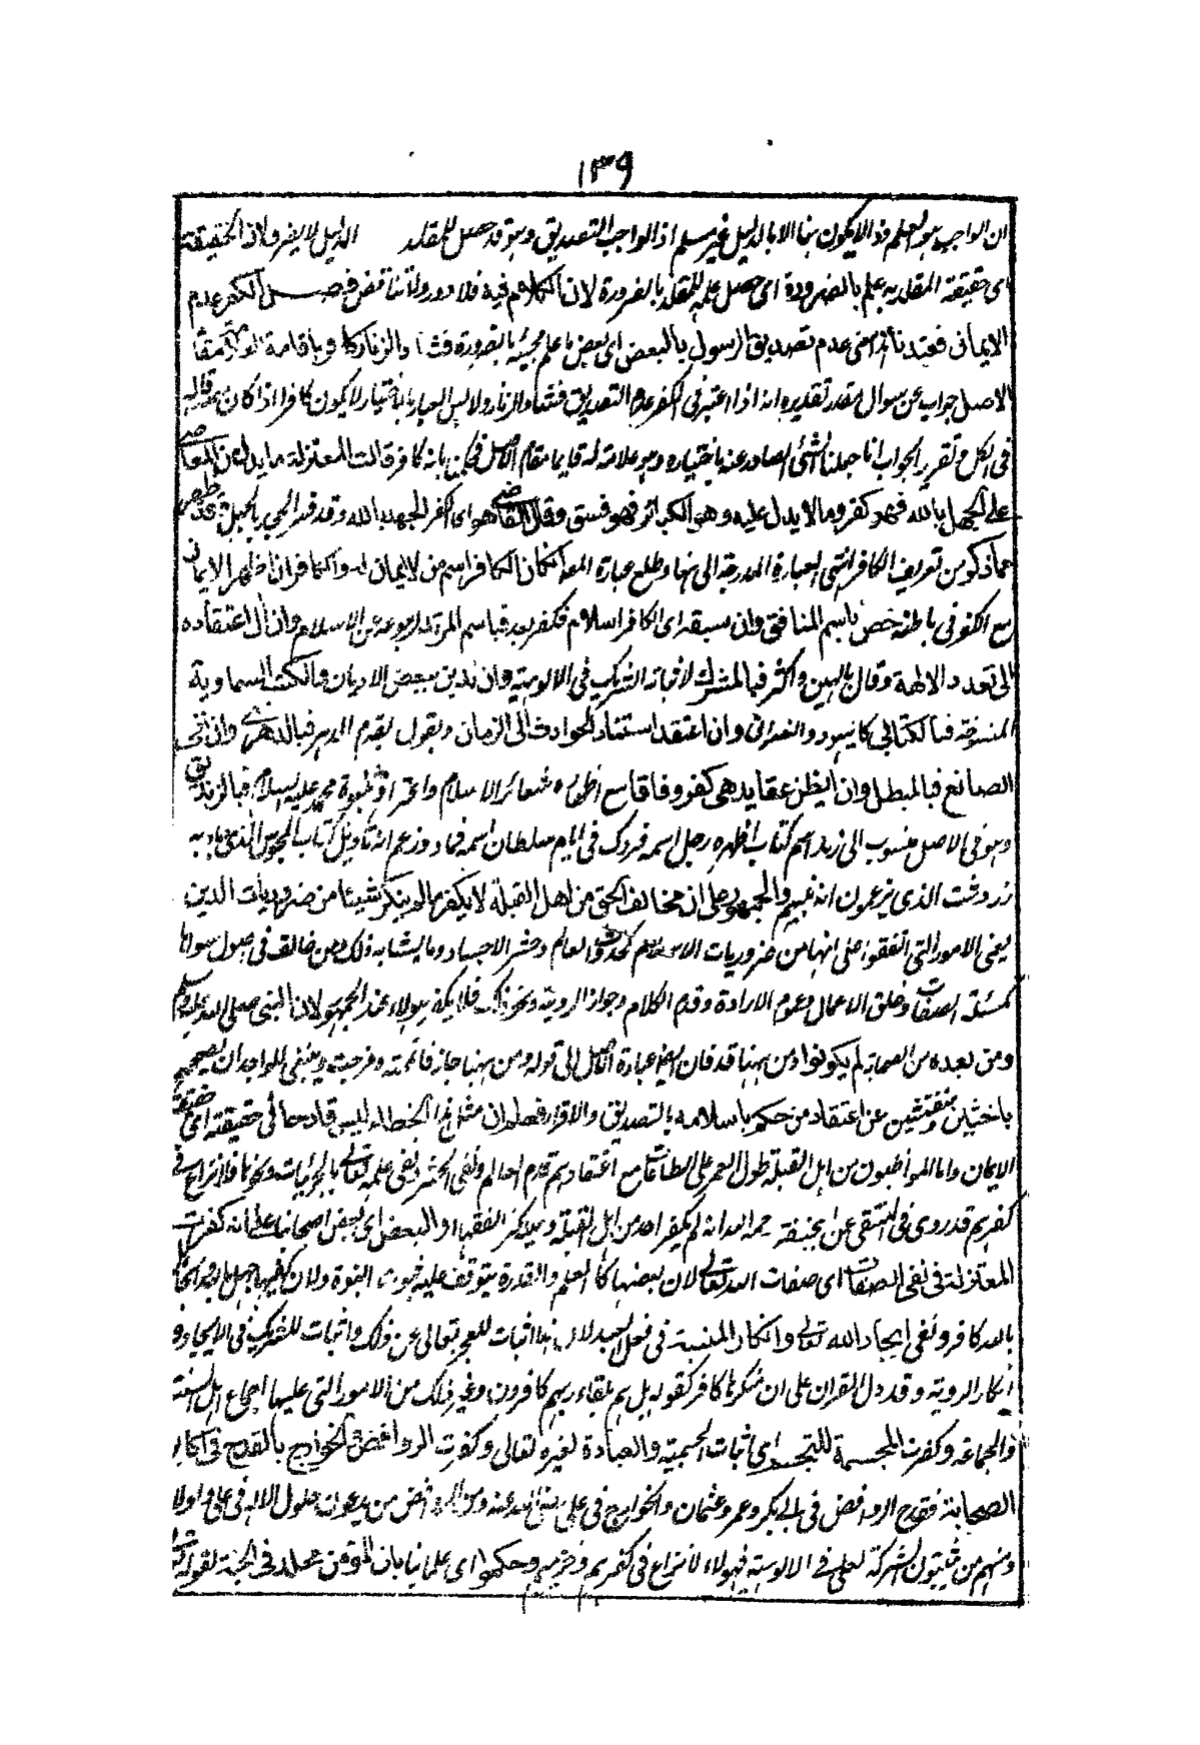 ١٣٩
ان الواجب هو العلم وذا لا يكون ههنا الا بالدليل غير مسلم اذ الواجب التصديق وهو قد حصل للمقلد الدليل لا يضر ولان الحقيقة
اى حقيقة المقلد به يعلم بالضرورة اى حصل علمه للمقلد بالضرورة لان الكلام فيه فلا دور ولا تناقض فصل الكفر عدم
الايمان فعندنا اى معنى عدم تصديق الرسول بالبعض اى بعض ما علم مجيئه بالضرورة فشاد الزنار كافر باقامة
الاصل جواب عن سوال مقدر تقديره انه اذا اعتبر فى الكفر عدم التصديق فشاد الزنار ولابس الغيار باختيار لا يكون كافرا اذا كان مصدقا له
فى الكل تقرير الجواب انا جعلنا الشئ الصادر عنه باختياره وهو علامة له قايما مقام الاصل فحكمنا بانه كافر قالت المعتزلة ما يدل من المعاصى
على الجهل بالله فهو كفر وما لا يدل عليه وهى الكبائر فهو فسق وقال القاضى هو اى الكفر الجهل بالله وقد فسر الجهل فقد ظهر
مما ذكر من تعريف الكافر انتهى العبارة المندرجة الى ههنا ومطلع عبارة المقاصد ان الكافر اسم من لا ايمان له والكافر ان اظهر الايمان
مع الكفر فى باطنه خص باسم المنافق وان سبقه اى الكافر اسلام فكفر بعد فباسم المرتد لرجوعه عن الاسلام وان آل اعتقاده
الى تعدد الالهة وقال بالهين واكثر فبالمشرك لاثباته الشريك فى الالوهية وان تدين ببعض الاديان والكتب السماوية
المنسوخة فبالكتابى كاليهود والنصرانى وان اعتقد استناد الحوادث الى الزمان ويقول بقدم الدهر فبالدهرى وان نفى
الصانع فبالمعطل وان ابطن عقايد هى كفر وفاقا مع اظهاره شعائر الاسلام واعترافه بنبوة محمد عليه السلام فبالزنديق
وهو فى الاصل منسوب الى زند اسم كتاب اظهره رجل اسمه فزدك فى ايام سلطان اسمه قباد وزعم انه تاويل كتاب المجوس الذى جاء به
زردشت الذى يزعمون انه نبيهم والجمهور على ان مخالف الحق من اهل القبلة لا يكفر ما لم ينكر شيئا من ضروريات الدين
يعنى الامور التى اتفقوا على انها من ضروريات الاسلام كحدوث العالم وحشر الاجساد وما يشابه ذلك فمن خالف فى اصول سواها
كمسئلة الصفات وخلق الاعمال وعموم الارادة وقدم الكلام وجواز الروية ونحو ذلك فلا يكفر هولاء عند الجمهور لان النبى صلى الله عليه وسلم
ومن بعده من الصحابة لم يكونوا ومن ههنا قد فات ايضا عبارة الاصل الى قوله ومن ههنا جاز
باحثين ومفتشين عن اعتقاد من حكموا باسلامه بالتصديق والاقرار فعلم ان مثل هذا الخطاء ليس قادحا فى حقيقة اى حقيقة
الايمان واما المواظبون من اهل القبلة طول العمر على الطاعات مع اعتقادهم قدم العالم ونفى الحشر ونفى علمه تعالى بالجزئيات ونحوها فلا نزاع فى
كفرهم قد روى فى المنتقى عن ابى حنيفة رحمه الله انه لم يكفر احد من اهل القبلة وعليه اكثر الفقهاء والبعض اى بعض اصحابنا على انه كفرت
المعتزلة فى نفى الصفات اى صفات الله تعالى لان بعضها كالعلم والقدرة يتوقف عليه ثبوت النبوة ولان نفيها جهل بالله والجاهل
بالله كافر ونفى ايجاد الله تعالى وانكار المشية فى فعل العبد لان اثبات للعجز تعالى عن ذلك واثبات للشريك فى الايجاد و
انكار الروية وقد دل القران على ان منكرها كافر كقوله بل هم بلقاء ربهم كافرون وغير ذلك من الامور التى عليها اجماع اهل السنة
والجماعة وكفرت المجسمة للتجسد اى اثبات الجسمية والعبادة لغيره تعالى وكفرت الروافض والخوارج بالقدح فى اكابر
الصحابة فقدح الروافض فى ابى بكر وعمر وعثمان والخوارج فى على رضى الله عنه ومن الروافض من يدعون حلول الاله فى على واولا
ومنهم من يثبتون الشركة لعلى فى الالوهية فهولاء لا نزاع فى كفرهم وحكموا اى علمائنا بان المؤمن مخلد فى الجنة لقوله تعالى